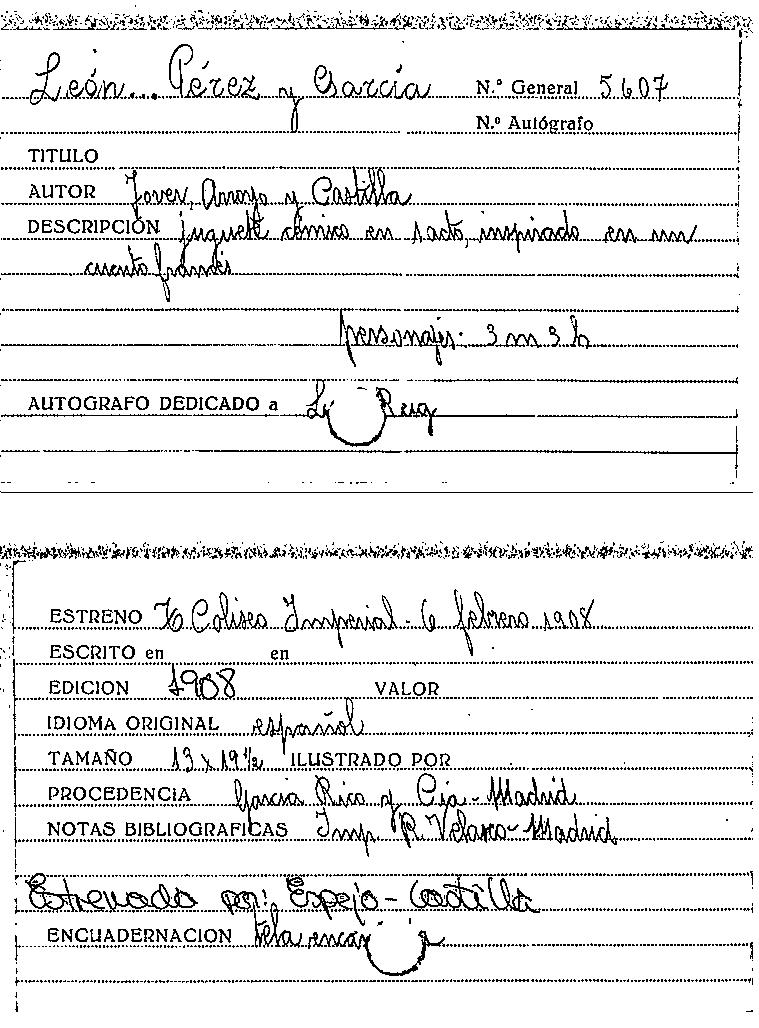 León... Pérez y García N.º General 5607
N.º Autógrafo
TITULO
AUTOR Jover, Arroyo y Castilla
DESCRIPCIÓN juguete cómico en 1 acto, inspirado en un
cuento francés
personajes: 3 m 3 h
AUTOGRAFO DEDICADO a Reig
ESTRENO Coliseo Imperial - 6 febrero 1908
ESCRITO en en
EDICION 1908 VALOR
IDIOMA ORIGINAL español
TAMAÑO 13 x 19 ½ ILUSTRADO POR
PROCEDENCIA Garcia Rico y Cia - Madrid
NOTAS BIBLIOGRAFICAS Imp. R. Velasco - Madrid
Estrenado por: Espejo - Castilla
ENCUADERNACION tela